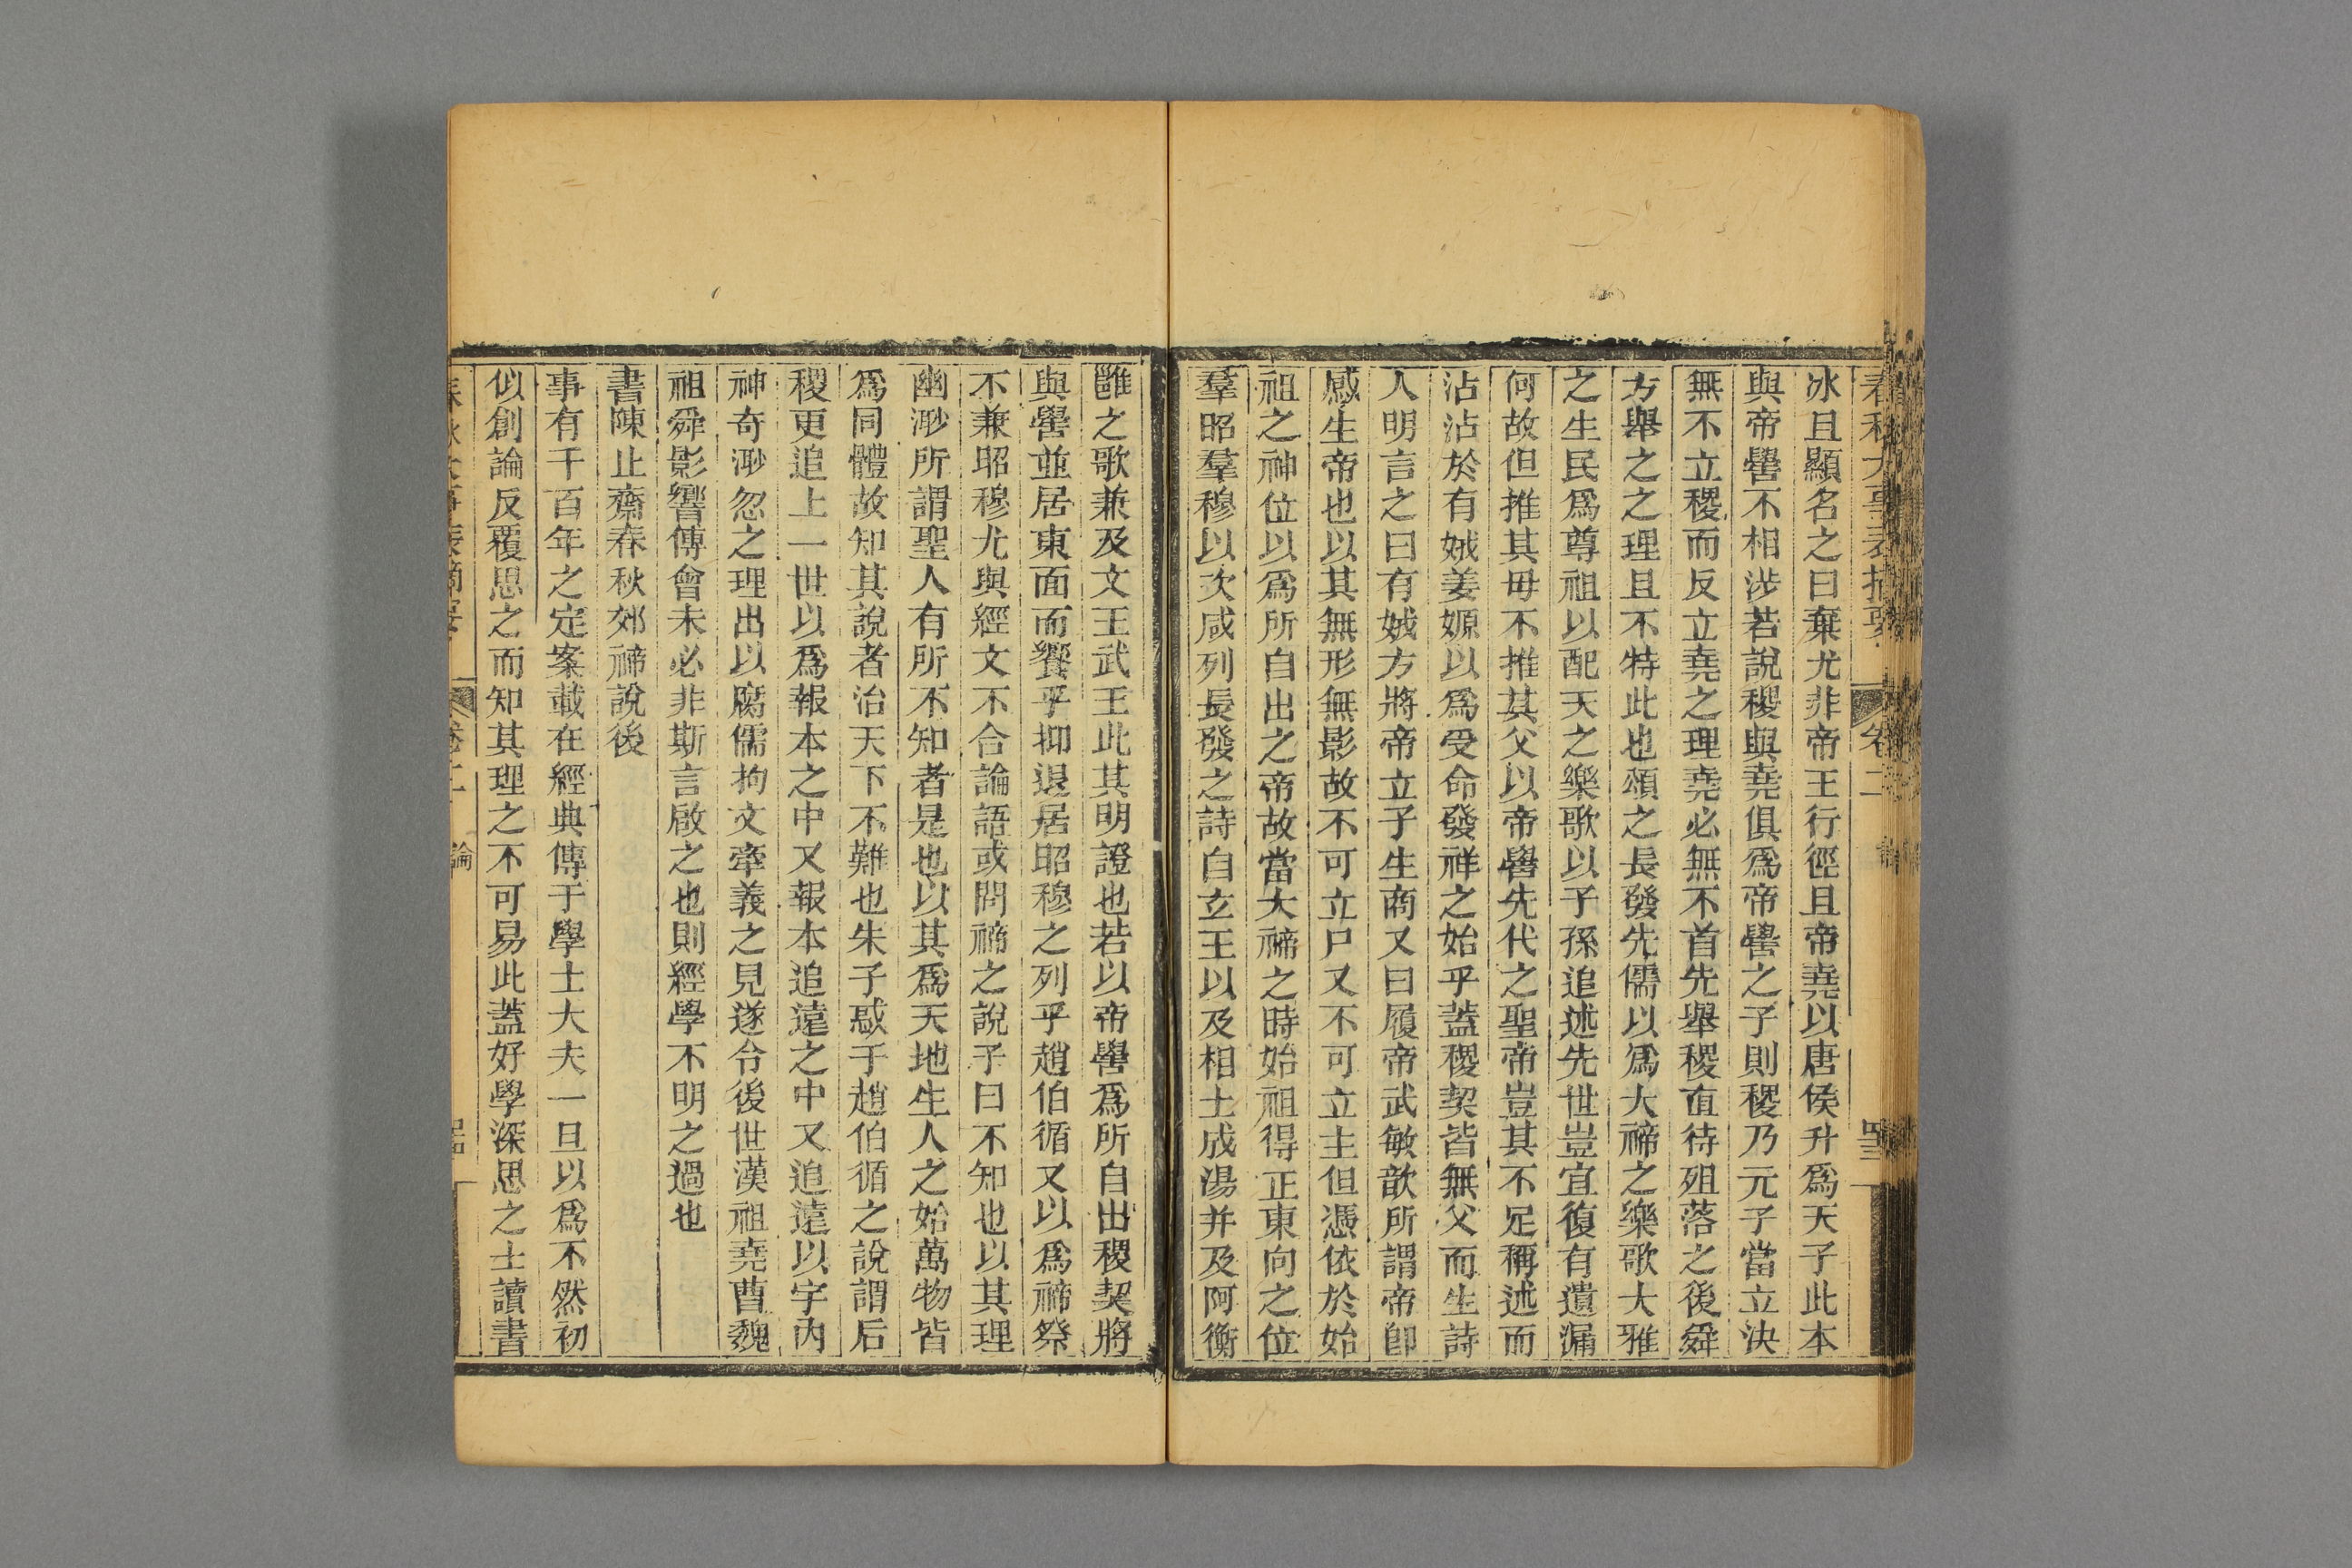 春秋大事表摘要 卷二 論 四三
冰且顯名之曰棄尤非帝王行徑且帝堯以唐侯升爲天子此本
與帝嚳不相涉若說稷與堯俱爲帝嚳之子則稷乃元子當立決
無不立稷而反立堯之理堯必無不首先舉稷直待殂落之後舜
方舉之之理且不特此也頌之長發先儒以爲大禘之樂歌大雅
之生民爲尊祖以配天之樂歌以子孫追述先世豈宜復有遺漏
何故但推其毋不推其父以帝嚳先代之聖帝豈其不足稱述而
沾沾於有娀姜嫄以爲受命發祥之始乎蓋稷契皆無父而生詩
人明言之曰有娀方將帝立子生商又曰履帝武敏歆所謂帝卽
感生帝也以其無形無影故不可立尸又不可立主但憑依於始
祖之神位以爲所自出之帝故當大禘之時始祖得正東向之位
羣昭羣穆以次咸列長發之詩自玄王以及相土成湯并及阿衡
雝之歌兼及文王武王此其明證也若以帝嚳爲所自出稷契將
與嚳並居東面而饗乎抑退居昭穆之列乎趙伯循又以爲禘祭
不兼昭穆尤與經文不合論語或問禘之說子曰不知也以其理
幽渺所謂聖人有所不知者是也以其爲天地生人之始萬物皆
爲同體故知其說者治天下不難也朱子惑于趙伯循之說謂后
稷更追上一世以爲報本之中又報本追遠之中又追遠以宇內
神奇渺忽之理出以腐儒拘文牽義之見遂令後世漢祖堯曹魏
祖舜影響傅會未必非斯言啟之也則經學不明之過也
書陳止齋春秋郊禘說後
事有千百年之定案載在經典傳于學士大夫一旦以爲不然初
似創論反覆思之而知其理之不可易此蓋好學深思之士讀書
春秋大事表摘要 卷二 論